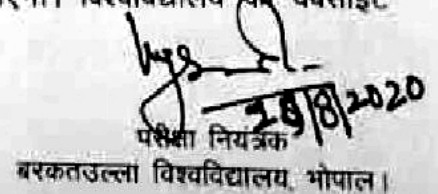 विश्वविद्यालय की वेबसाइट
8/2020
परीक्षा नियंत्रक
बरकतउल्ला विश्वविद्यालय, भोपाल।